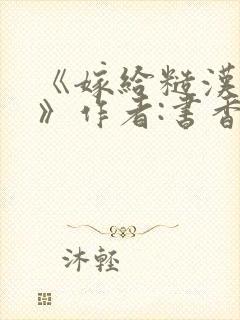 《嫁给糙漢
》作者:書香
沐輕